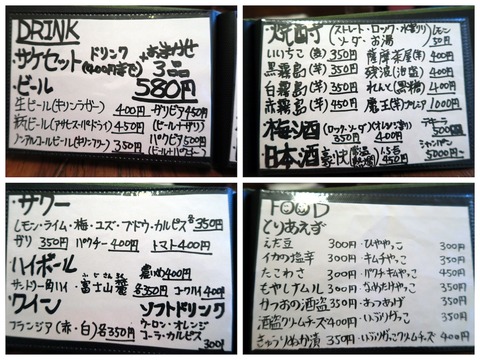 DRINK
・サケセット ドリンク +おまかせ
(400円まで) 3品
・ビール 580円
生ビール(キリンラガー) 400円 ・ガリビア 450円
瓶ビール(アサヒスーパードライ) 450円 (ビール+ガリ)
ノンアルコールビール(キリンフリー) 350円 パクビア 500円
(ビール+パクチー)
・焼酎 (ストレート・ロック・水割り レモン
ソーダ・お湯 50円
いいちこ(麦) 350円 薩摩茶屋(芋) 400円
黒霧島(芋) 350円 残波(泡盛) 400円
白霧島(芋) 350円 れんと(黒糖) 400円
赤霧島(芋) 450円 魔王(芋)プレミア 1000円
・梅酒 (ロック・ソーダ) 350円 400円 テキーラ 500円
・日本酒 350円 450円 シャンパン 5000円~
・サワー
レモン・ライム・梅・ユズ・ブドウ・カルピス 各350円
ガリ 350円 パクチー 400円 トマト 400円
・ハイボール 濃いめ 400円
サントリー角ハイ・富士山麓 各350円 コークハイ 400円
・ワイン ソフトドリンク
フランジア(赤・白) 各350円 ウーロン・オレンジ
コーラ・カルピス 300円
FOOD
とりあえず
えだ豆 300円 ・ひややっこ 300円
イカの塩辛 300円 ・キムチやっこ 350円
たこわさ 350円 ・パクチやっこ 450円
もやしナムル 300円 ・なめたけやっこ 350円
かつおの酒盗 350円 ・あつあげ 350円
酒盗クリームチーズ 400円 ・いぶりがっこ 350円
きゅうりぬか漬 350円 ・いぶりがっこクリームチーズ 400円